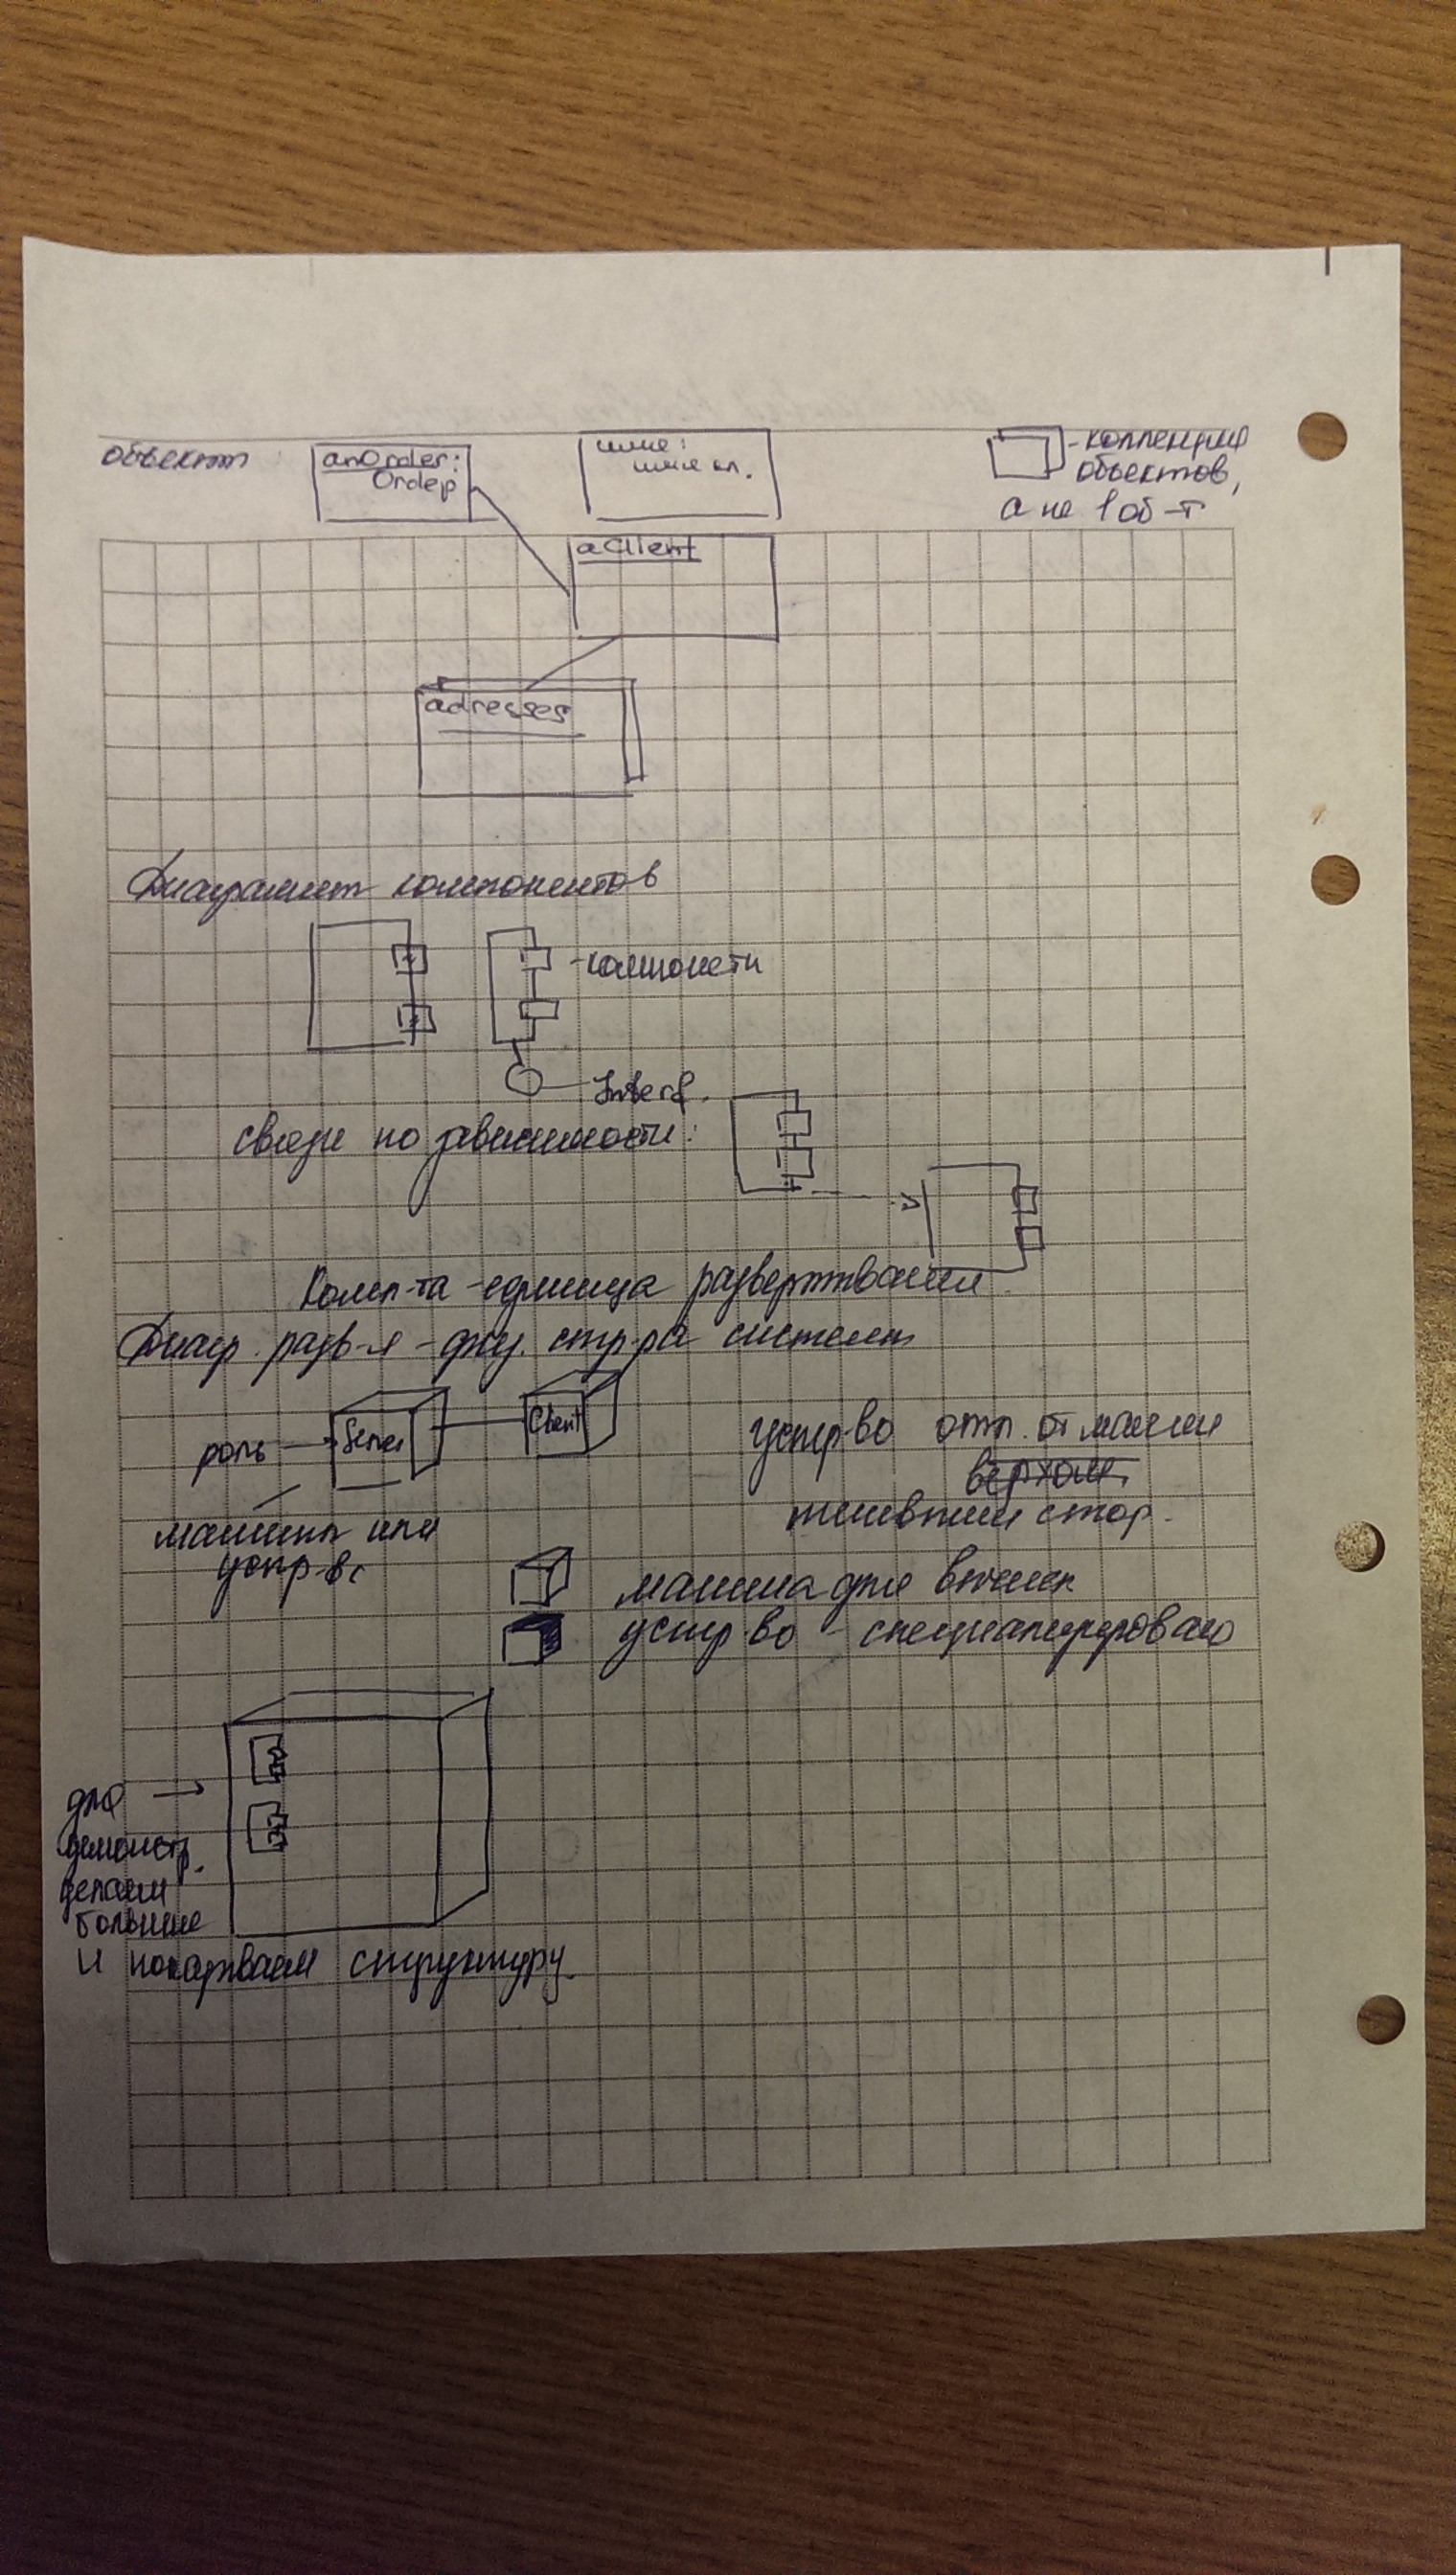 объект
anOrder:
Ordер
имя:
имя кл.
- коллекция
объектов,
а не 1 об-т
aClient
adresses
Диаграмма компонентов
- компоненты
Interf.
связи по зависимости:
Комп-та - единица развертывания
Диагр. разв-я - физ. стр-ра системы
роль
Server
Client
машина или
устр-во
устр-во отл. от машины
верхом.
стор.
машина для вычисл
устр-во - специализировано
для
демонстр.
делаем
больше
и показываем структуру.